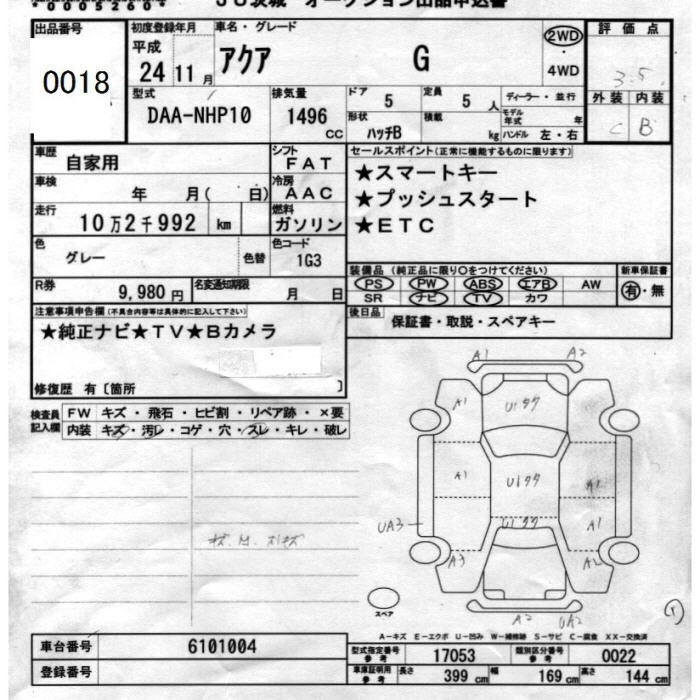 JU茨城 オークション出品申込書
出品番号 0018
初度登録年月 平成 24 11月
車名・グレード アクア G
2WD ・ 4WD
評価点 3.5
外装 内装
C B
型式 DAA-NHP10
排気量 1496 CC
ドア 5
定員 5 人
形状 ハッチB
積載 kg
ディーラー・並行
モデル年式 年
ハンドル 左・右
車歴 自家用
シフト FAT
車検 年 月( 日)
冷房 AAC
走行 10万2千992 km
燃料 ガソリン
セールスポイント(正常に機能するものに限ります)
★スマートキー
★プッシュスタート
★ETC
色 グレー
色替
色コード 1G3
R券 9,980円
名変通知期限 月 日
装備品(純正品に限り〇をつけてください)
PS PW ABS エアB AW
SR ナビ TV カワ
新車保証書 有・無
後日品 保証書・取説・スペアキー
注意事項申告欄(不具合内容等は具体的に記入して下さい)
★純正ナビ★TV★Bカメラ
修復歴 有〔箇所 〕
検査員記入欄
FW キズ・飛石・ヒビ割・リペア跡・×要
内装 キズ・汚レ・コゲ・穴・スレ・キレ・破レ
A1 A2
A1 U1 A1
A1 U1 A1
U1 A1
UA3
A3 A2
A2 UA2
スペア
A-キズ E-エクボ U-凹み W-補修跡 S-サビ C-腐食 XX-交換済
車台番号 6101004
登録番号
型式指定番号 参考 17053
類別区分番号 参考 0022
車庫証明用 参考 長さ 399 cm 幅 169 cm 高さ 144 cm